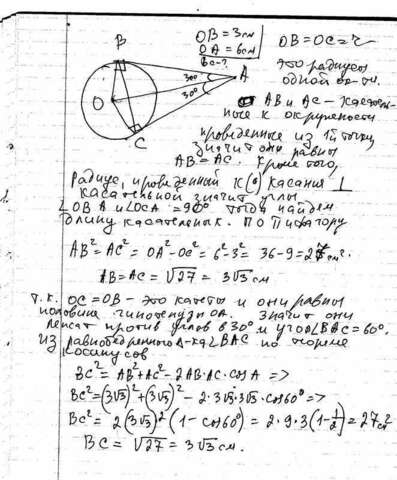 B
OB = 3см
OA = 6см
BC-?
OB = OC = r
это радиусы
одной ок-ти.
A
30°
30°
O
C
AB и AC - касатель-
ные к окружности
проведенные из 1й точки
значит они равны
AB = AC. Кроме того,
Радиус, проведенный к (·) касания ⊥
касательной значит углы
∠OBA и ∠OCA = 90° тогда найдем
длину касательных. По Пифагору
AB² = AC² = OA² - OC² = 6² - 3² = 36 - 9 = 27 см².
AB = AC = √27 = 3√3 см
т.к. OC = OB - это катеты и они равны
половине гипотенузы OA. Значит они
лежат против углов в 30° и угол ∠BAC = 60°.
Из равнобедренного Δ-ка ∠BAC по теореме
косинусов
BC² = AB² + AC² - 2AB·AC·cosA =>
BC² = (3√3)² + (3√3)² - 2·3√3·3√3·cos60° =>
BC² = 2(3√3)²(1 - cos60°) = 2·9·3(1 - 1/2) = 27см²
BC = √27 = 3√3 см.